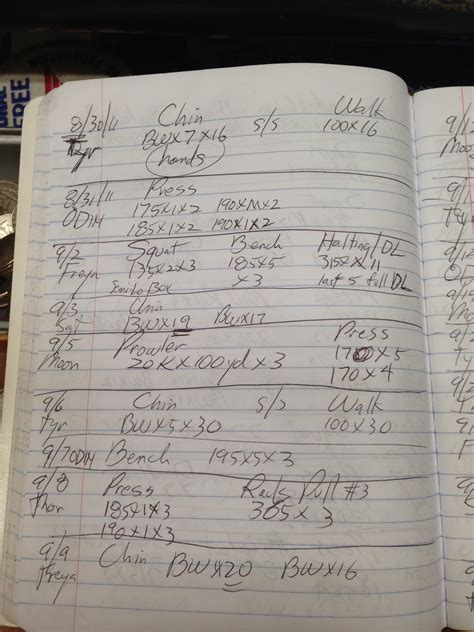 FREE
8/30/11 Chin s/s Walk
Tyr BWx7x16 100x16
hands
8/31/11 Press
ODIN 175x1x2 190xMx2
185x1x2 190x1x2
9/2 Squat Bench Halting/DL
Freya 135x2x3 185x5 315x
x3 last 5 full DL
9/3 Chin
Sat BWx19 BWx17
9/5 Prowler Press
Moon 20Kx100ydx3 170x5
170x4
9/6 Chin s/s Walk
Tyr BWx5x30 100x30
9/7 ODIN Bench 195x5x3
9/8 Press Rack Pull #3
Thor 185x1x3 305x3
190x1x3
9/9 Chin BWx20 BWx16
Freya